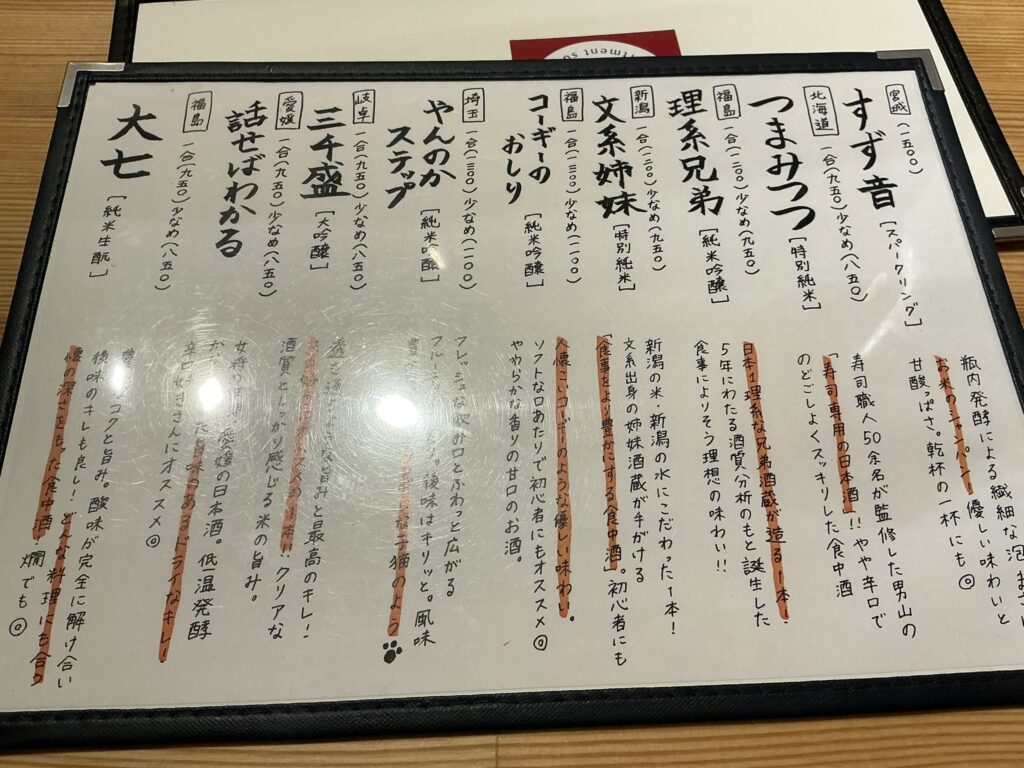 宮城 (一五〇〇)
すず音 [スパークリング]
瓶内発酵による繊細な泡
お米のシャンパン！優しい味わいと
甘酸っぱさ。乾杯の一杯にも◎
北海道 一合(九五〇)少なめ(八五〇)
つまみつつ [特別純米]
寿司職人50余名が監修した男山の
「寿司専用の日本酒」!! やや辛口で
のどごしよくスッキリした食中酒
福島 一合(一二〇〇)少なめ(九五〇)
理系兄弟 [純米吟醸]
日本1理系な兄弟酒蔵が造る1本!
5年にわたる酒質分析のもと誕生した
食事によりそう理想の味わい!!
新潟 一合(一二〇〇)少なめ(九五〇)
文系姉妹 [特別純米]
新潟の米、新潟の水にこだわった1本!
文系出身の姉妹酒蔵が手がける
「食事をより豊かにする食中酒」。初心者にも
福島 一合(一三〇〇)少なめ(一一〇〇)
コーギーの
おしり [純米吟醸]
人懐こいコーギーのような優しい味わい。
ソフトな口あたりで初心者にもオススメ◎
やわらかな香りの甘口のお酒。
埼玉 一合(一三〇〇)少なめ(一一〇〇)
やんのか
ステップ [純米吟醸]
フレッシュな飲み口とふわっと広がる
後味はキリッと。風味
な子猫のよう
岐阜 一合(九五〇)少なめ(八五〇)
三千盛 [大吟醸]
な旨みと最高のキレ!
の1本!! クリアな
酒質としっかり感じる米の旨み。
愛媛 一合(九五〇)少なめ(八五〇)
話せばわかる
愛媛の日本酒。低温発酵
旨味のあるドライなキレ!
辛口好きさんにオススメ◎
福島 一合(九五〇)少なめ(八五〇)
大七 [純米生酛]
コクと旨み。酸味が完全に解け合い
後味のキレも良し! どんな料理にも合う
懐の深さをもった食中酒 燗でも◎